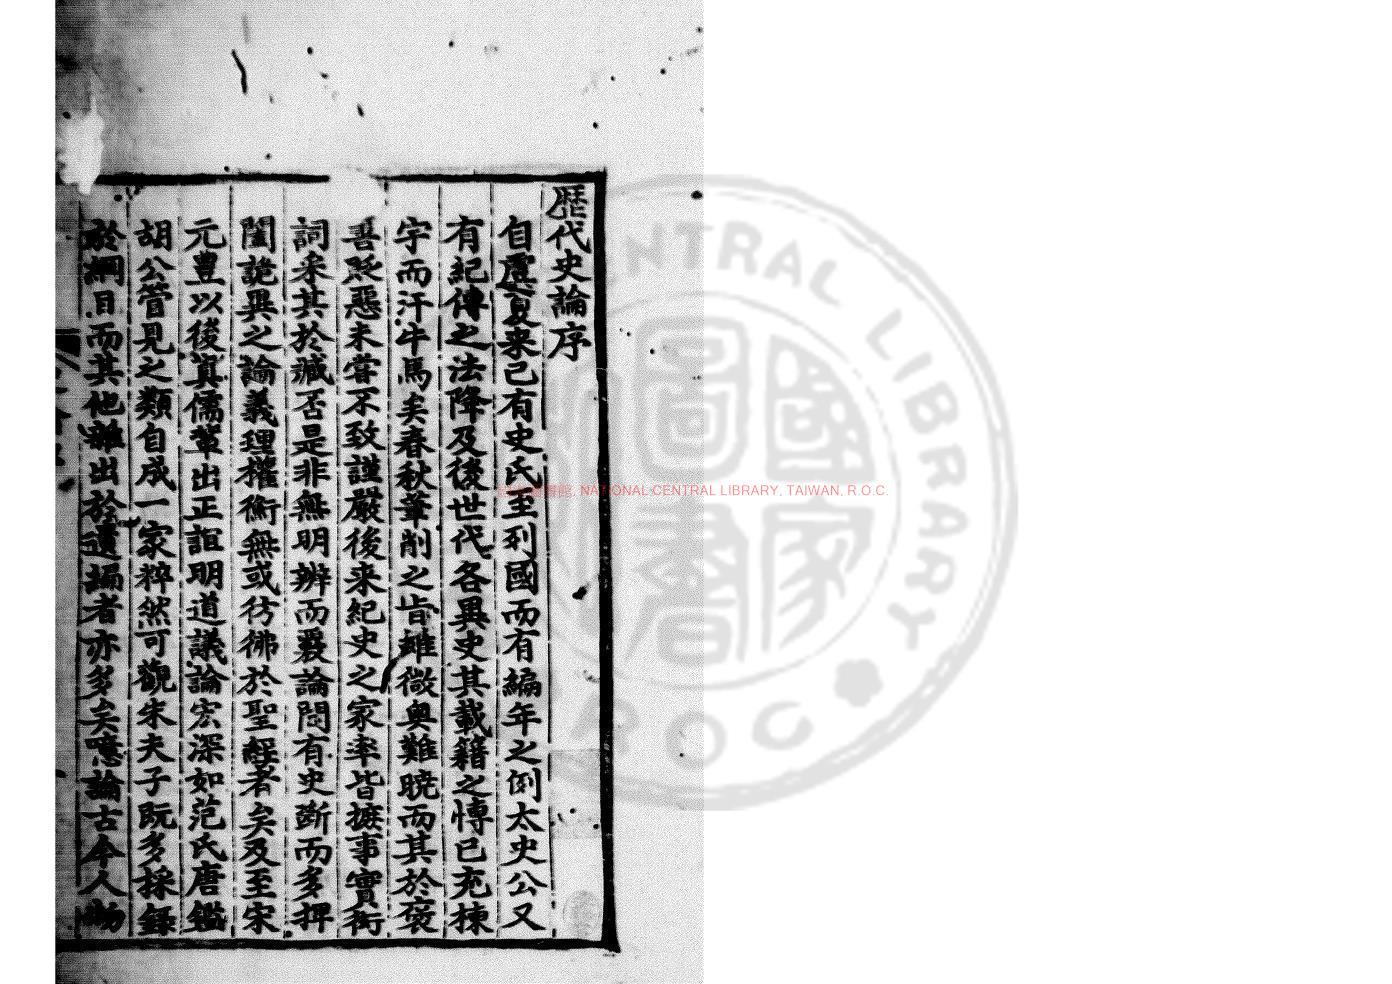 歷代史論序
自虞夏来已有史氏至列國而有編年之例太史公又
有紀傳之法降及後世代各異史其載籍之博已充棟
宇而汗牛馬矣春秋筆削之旨雖微奥難曉而其於褒
善貶惡未嘗不致謹嚴後来紀史之家率皆摭事實衒
詞采其於臧否是非無明辨而覈論間有史斷而多押
闔詭異之論義理權衡無或彷彿於聖經者矣及至宋
元豊以後真儒輩出正誼明道議論宏深如范氏唐鑑
胡公管見之類自成一家粹然可觀朱夫子既多採録
於綱目而其他雜出於遺編者亦多矣噫論古今人物
NATIONAL CENTRAL LIBRARY, TAIWAN, R.O.C.
CENTRAL LIBRARY
ROC